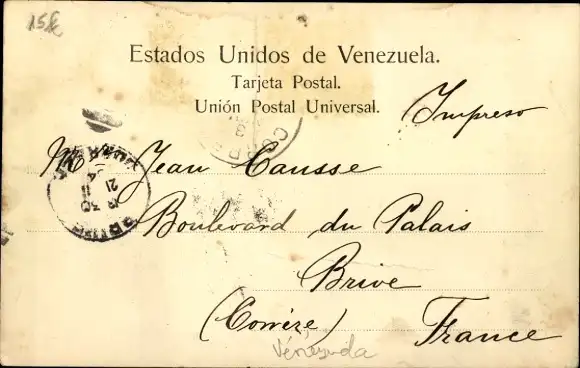 15f
Estados Unidos de Venezuela.
Tarjeta Postal.
Unión Postal Universal.
Impreso
Mr Jean Causse
Boulevard du Palais
Brive
(Corrèze) France
Vénézuela